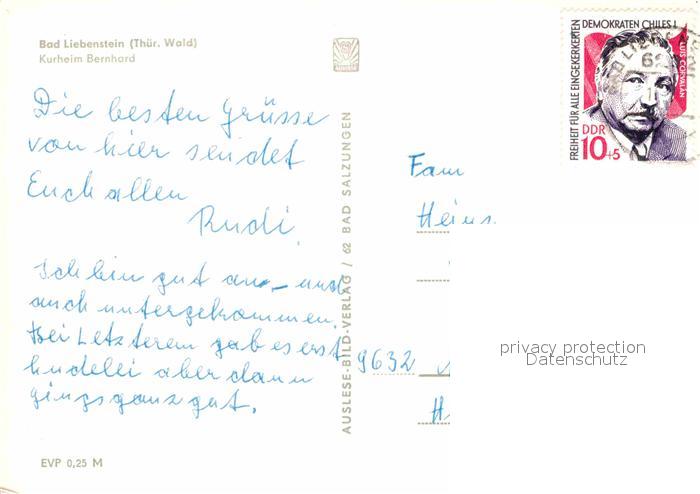 Bad Liebenstein (Thür. Wald)
Kurheim Bernhard
Die besten Grüsse
von hier sendet
Euch allen
Rudi.
Ich bin gut an- und
auch untergekommen.
Bei Letzterem gab es erst
hudelei aber dann
gings ganz gut.
EVP 0,25 M
AUSLESE-BILD-VERLAG / 62 BAD SALZUNGEN
FREIHEIT FÜR ALLE EINGEKERKERTEN
DEMOKRATEN CHILES!
LUIS CORVALAN
DDR
10+5
Fam
Heins.
9632
H
privacy protection
Datenschutz